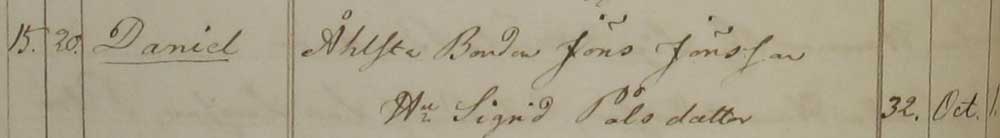 15. 20. Daniel Åhlsta Bonden Jöns Jönsson
Hu Sigrid Påls dotter 32. Oct. 1